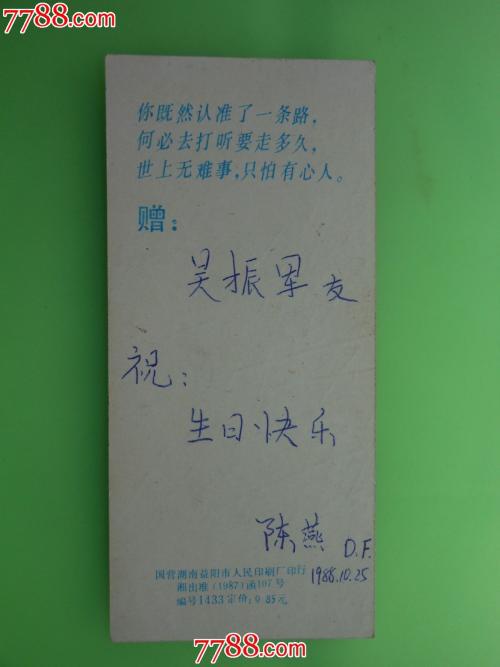 7788.com
你既然认准了一条路，
何必去打听要走多久，
世上无难事，只怕有心人。
赠：
吴振军友
祝：
生日快乐
陈燕 D.F.
1988.10.25
国营湖南益阳市人民印刷厂印行
湘出准（1987）函107号
编号1433 定价：0.85元
7788.com